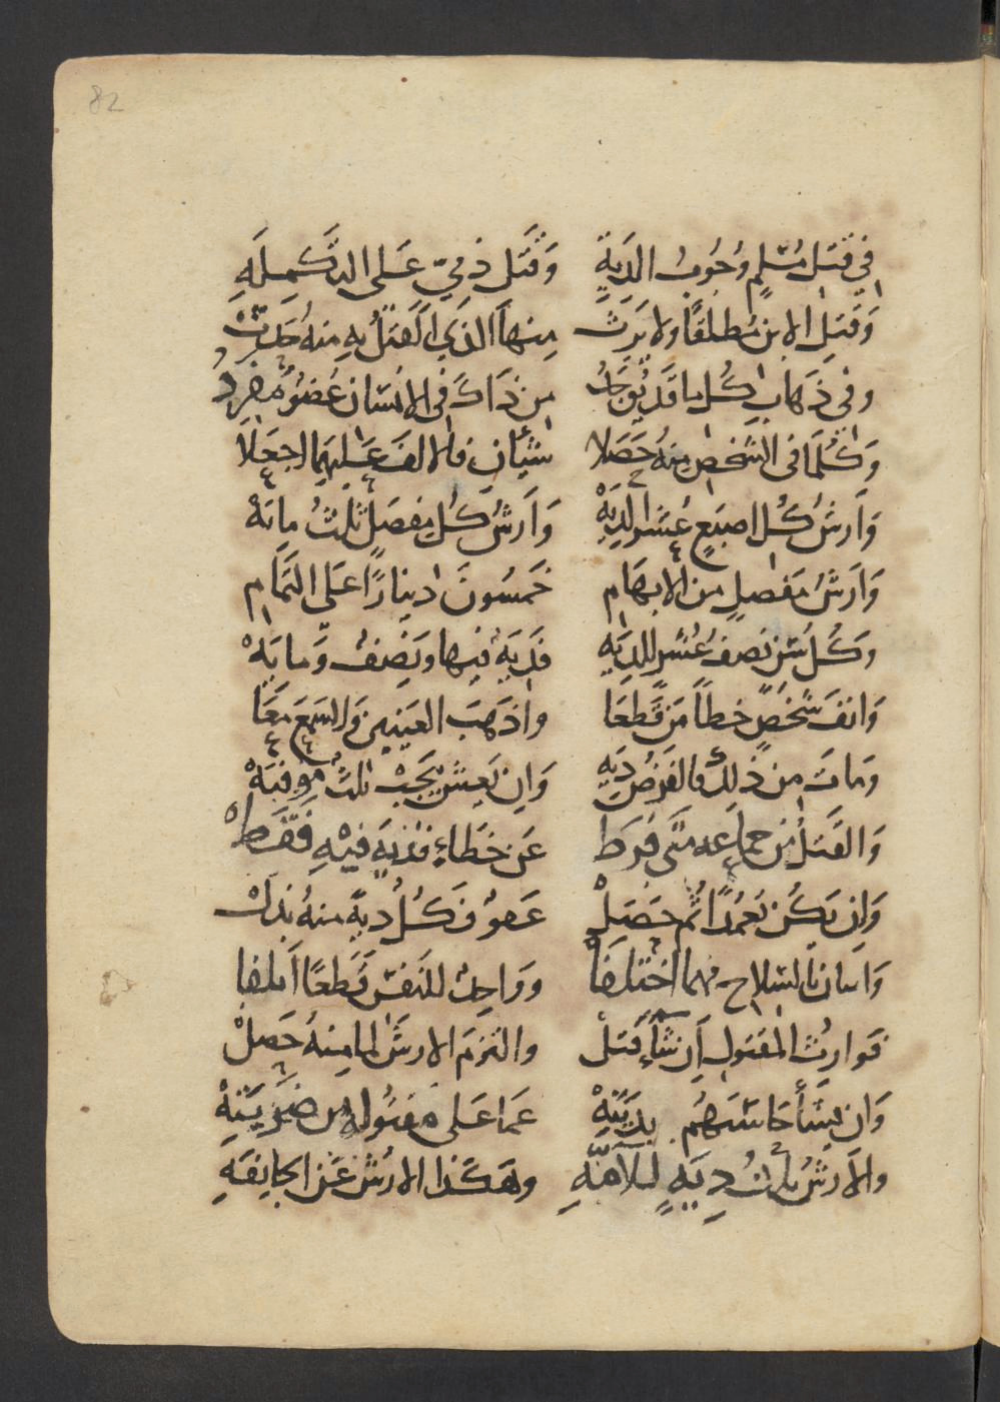 82
في قتل مسلم وجوب الدية وقتل ذمي على التكملة
وقتل الابن مطلقا ولا يرث منها الذي القتل به منه حدث
وفي ذهاب كل ما قد يوجد من ذاك في الانسان عضو مفرد
وكلما في الشخص منه حصلا شيان فالالف عليهما اجعلا
وارش كل اصبع عشر الدية وارش كل مفصل ثلث مائة
وارش مفصل من الابهام خمسون دينارا على التمام
وكل سن نصف عشر للدية فدية فيها ونصف ومايه
وانف شخص خطا من قطعا واذهب العينين والسمع معا
ومات من ذلك فالفرض دية وان يعش يجب ثلث موفيه
والقتل من جماعه متى فرط عن خطاء فدية فيه فقط
وان يكن تعمدا ثم حصل عفو فكل دية منه بذل
واثنان بالسلاح مهما اختلفا وواحد للنفس قطعا اتلفا
فوارث المقتول ان شاء قتل والتزم الارش لما منه حصل
وان يشأ حاسبهم بديته عما على مقتوله من ضربته
والارش ثلث دية للآمة وهكذا الارش عن الجائفة